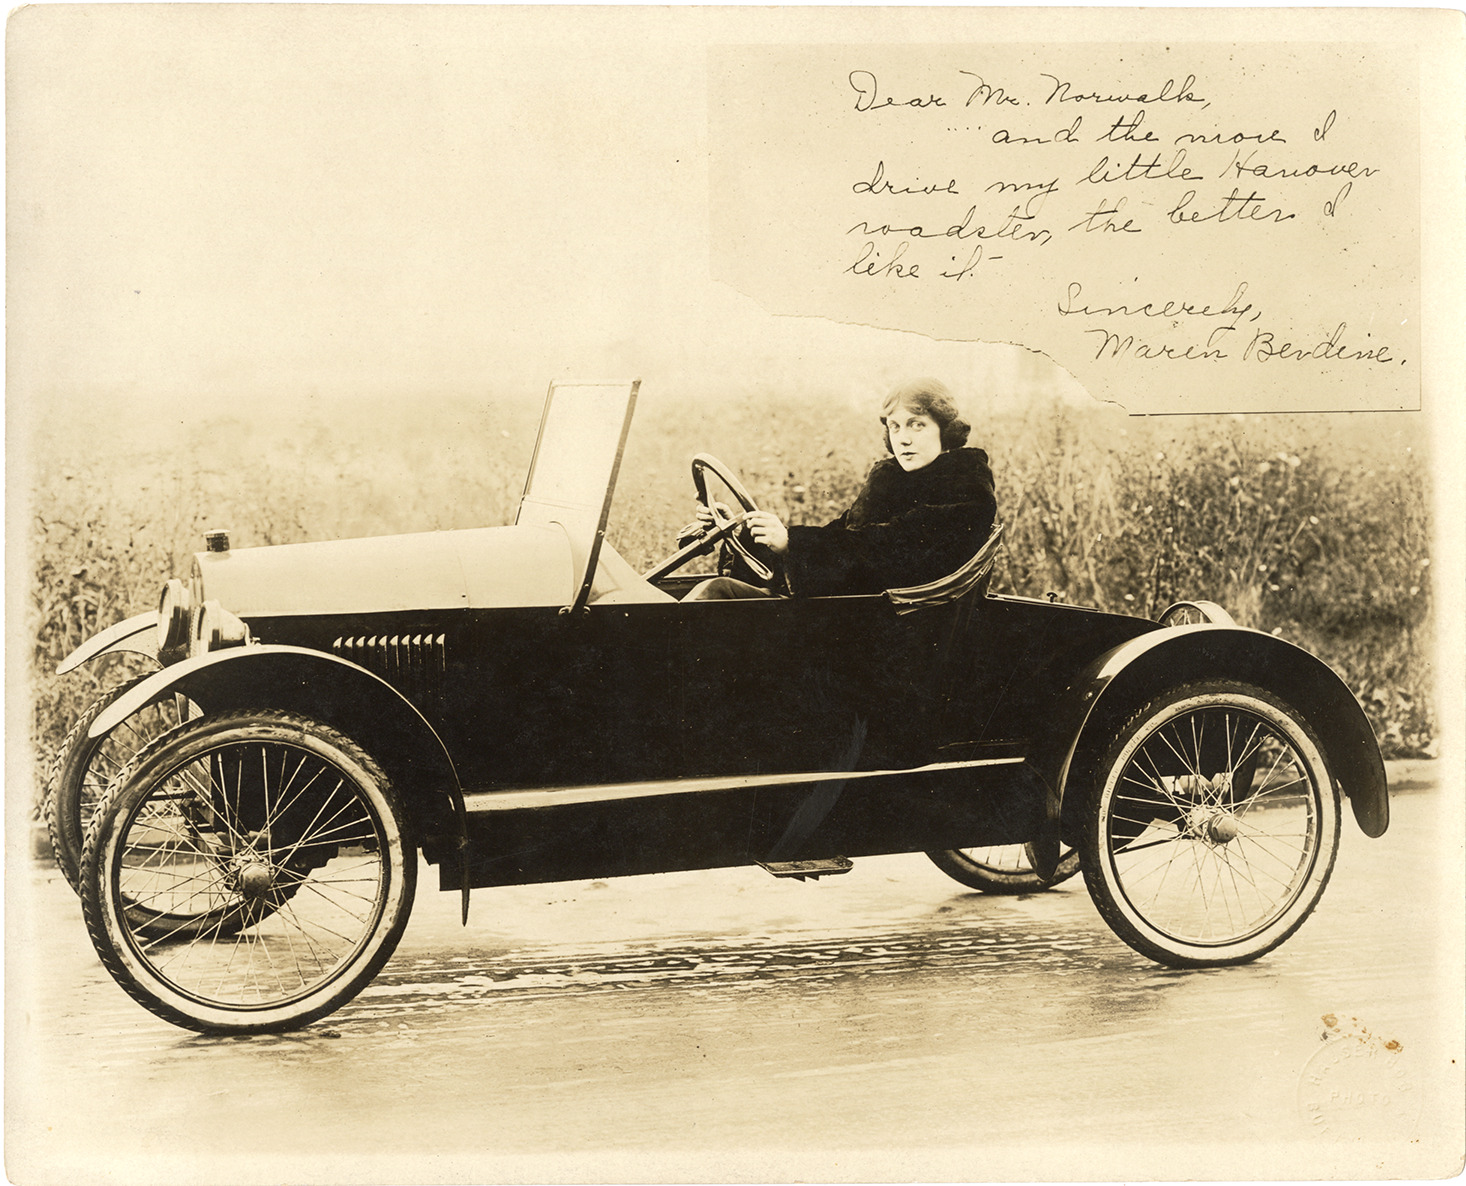 Dear Mr. Norwalk,
.... and the more I
drive my little Hanover
roadster, the better I
like it -
Sincerely,
Maren Berdine.
PHOTO